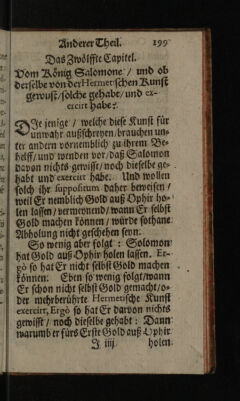 Anderer Theil. 199
Das Zwölffte Capitel.
Vom König Salomone / und ob
derselbe von der Hermetischen Kunst
gewust / solche gehabt / und ex-
ercirt habe?
Die jenige / welche diese Kunst für
unwahr außschreyen / brauchen un-
ter andern vornemblich zu ihrem Be-
helff / und wenden vor / daß Salomon
davon nichts gewist / noch dieselbe ge-
habt und exercirt habe. Und wollen
solch ihr suppositum daher beweisen /
weil Er nemblich Gold auß Ophir ho-
len lassen / vermeynend / wann Er selbst
Gold machen können / würde sothane
Abholung nicht geschehen seyn.
So wenig aber folgt: Salomon
hat Gold auß Ophir holen lassen. Er-
gò so hat Er nicht selbst Gold machen
können. Eben so wenig folgt / wann
Er schon nicht selbst Gold gemacht / o-
der mehrberührte Hermetische Kunst
exercirt, Ergò so hat Er davon nichts
gewist / noch dieselbe gehabt: Dann
warumb er fürs Erste Gold auß Ophir
J iiij holen